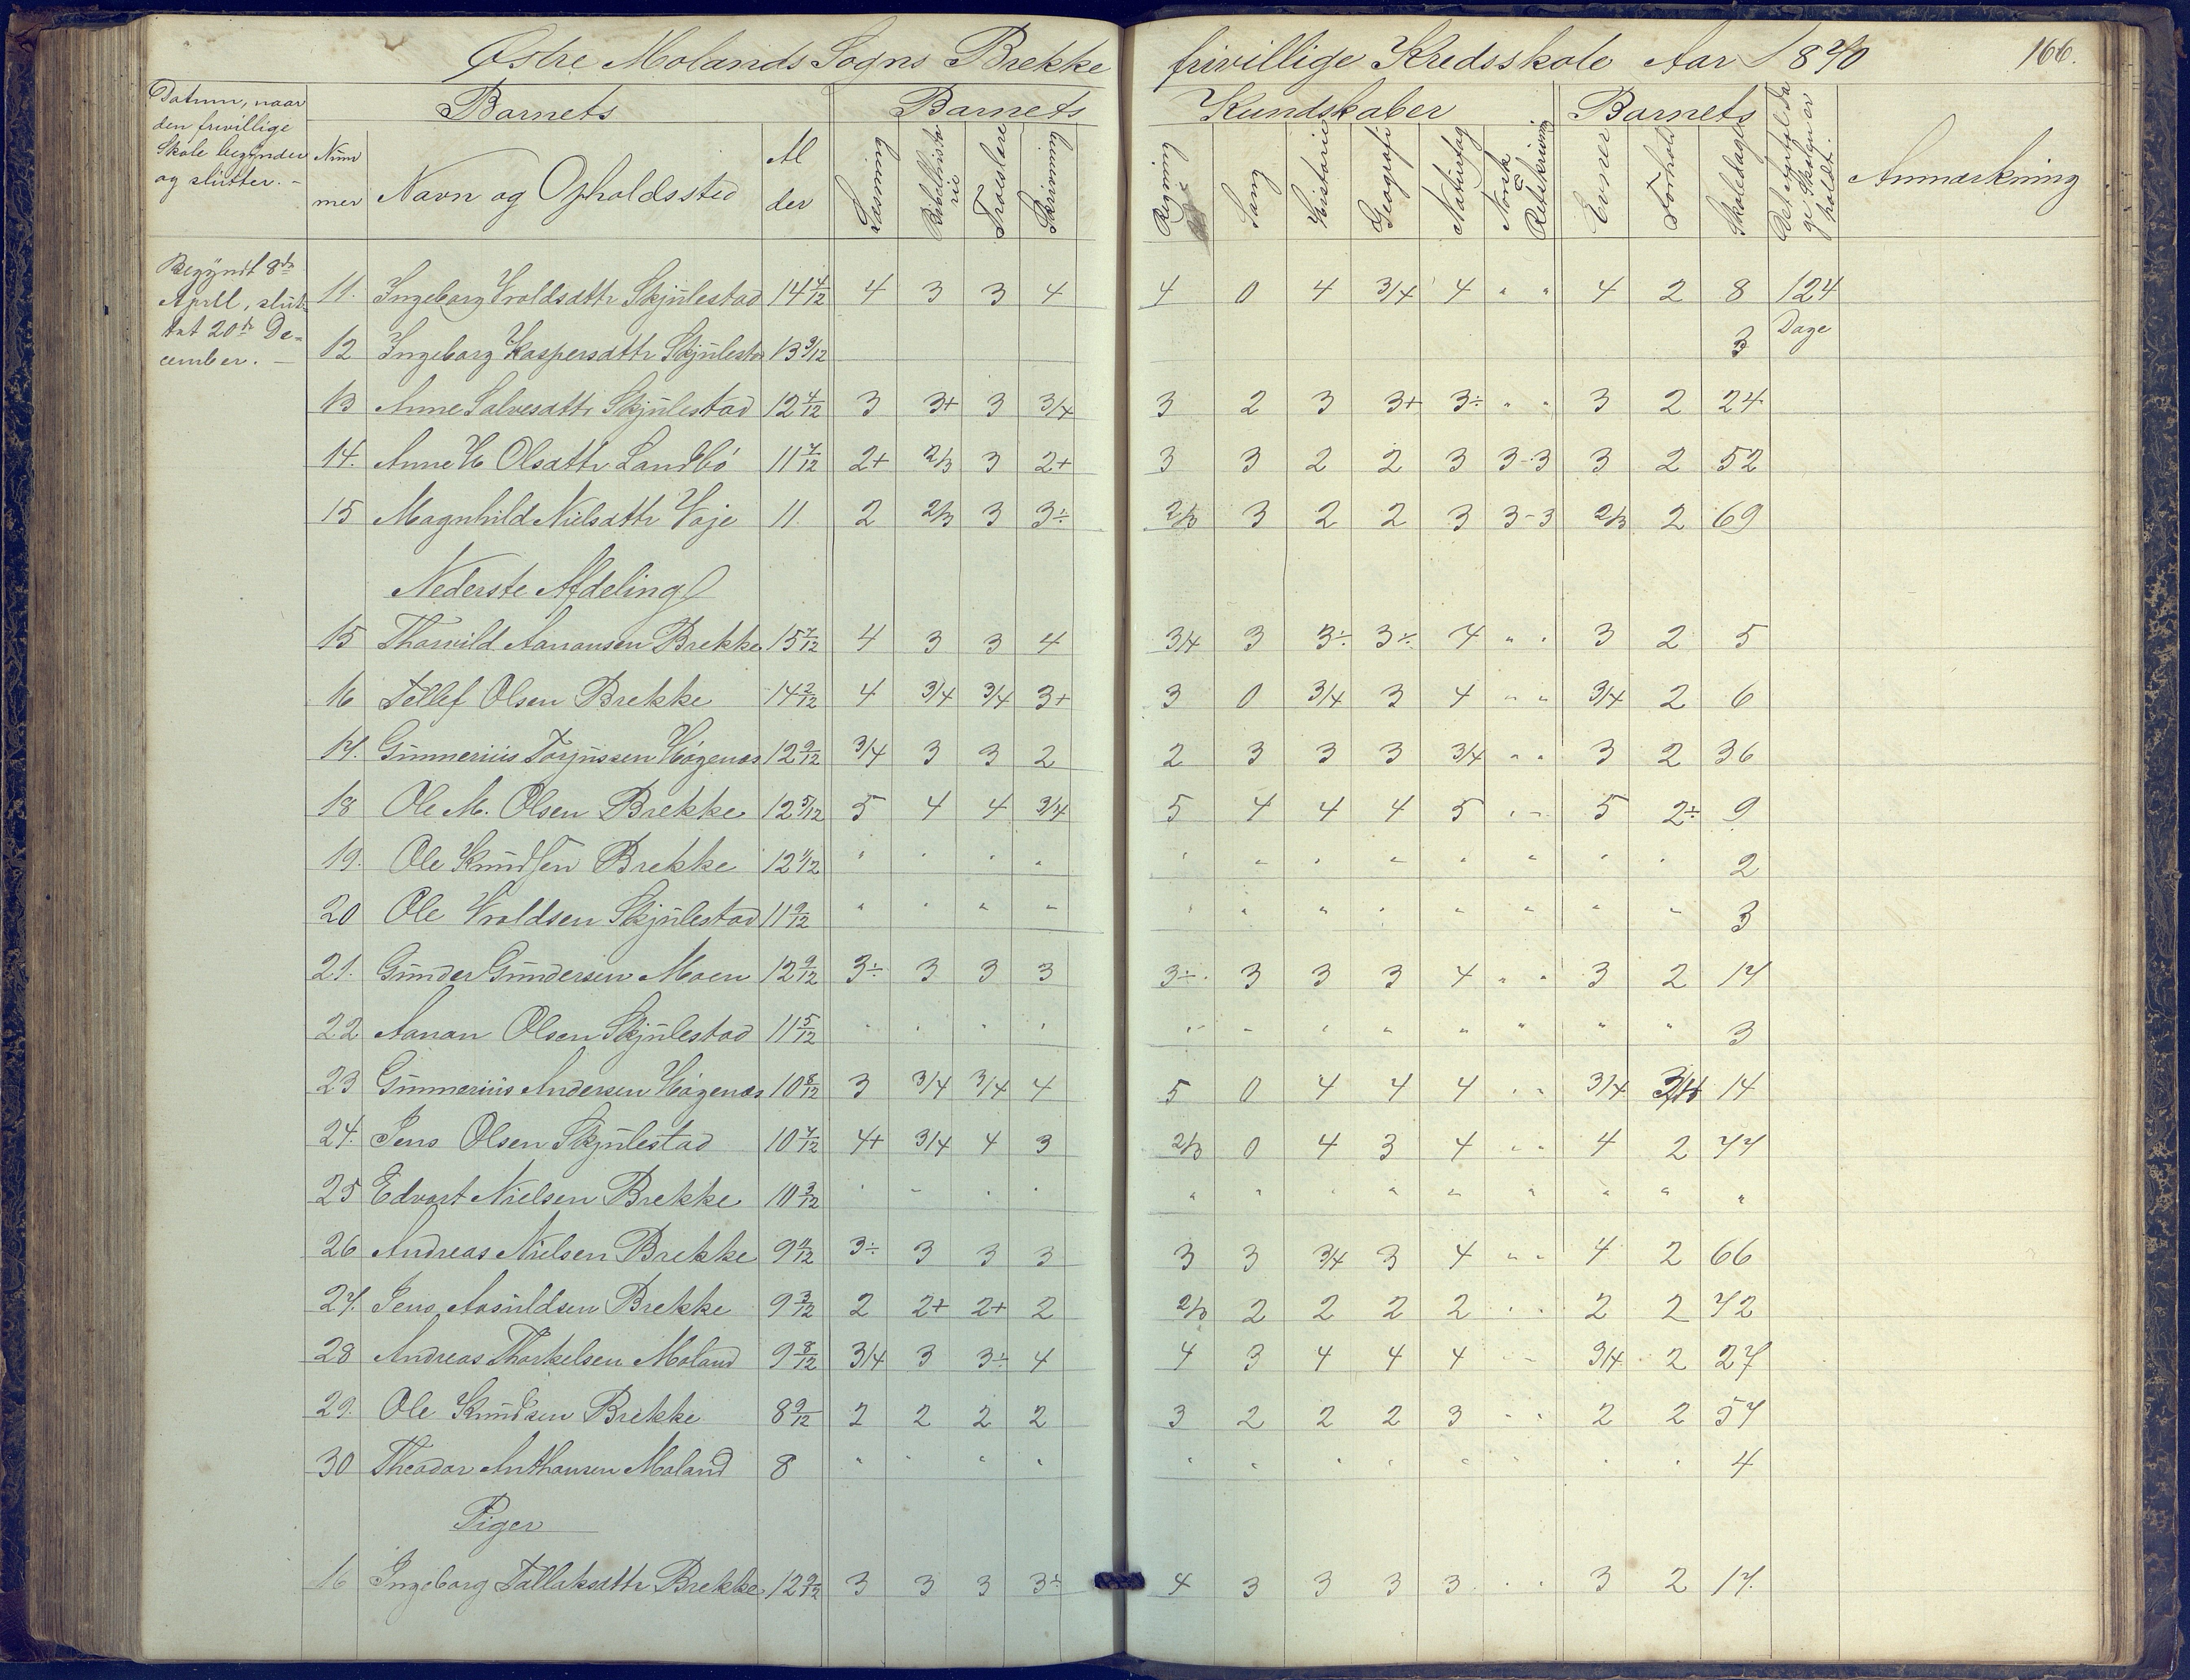 Østre Molands Sogns Brekke frivillige Kredsskole Aar 1870 166.
Datum, naar den frivillige Skole begynder og slutter. -
Barnets Barnets Kundskaber Barnets
Num mer Navn og Opholdssted Al der Læsning Bibelhisto rie Troeslære Skrivning Regning Sang Historie Geografi Naturfag Norsk Retskrivning Evner Forhold Skoledage Anmærkning
Begyndt 8de April, slut tet 20de De= cember. -
11. Ingeborg Vroldsdttr Skjulestad 14 4/12 4 3 3 4 4 0 4 3/4 4 " " 4 2 8 124 Dage
12 Ingeborg Kaspersdttr Skjulestad 13 9/12 3
13 Anne Salvesdttr Skjulestad 12 4/12 3 3+ 3 3/4 3 2 3 3+ 3÷ " " 3 2 24
14. Anne H Olsdttr Landbö 11 7/12 2+ 2/3 3 2+ 3 3 2 2 3 3-3 3 2 52
15 Magnhild Nielsdttr Vaje 11. 2 2/3 3 3÷ 2/3 3 2 2 3 3-3 2/3 2 69
Nederste Afdeling
15 Thorvild Aanansen Brekke 15 7/12 4 3 3 4 3/4 3 3÷ 3÷ 4 " " 3 2 5
16 Tellef Olsen Brekke 14 2/12 4 3/4 3/4 3+ 3 0 3/4 3 4 " " 3/4 2 6
17. Gunnerius Torjussen Högenæs 12 9/12 3/4 3 3 2 2 3 3 3 3/4 " " 3 2 36
18 Ole M. Olsen Brekke 12 5/12 5 4 4 3/4 5 4 4 4 5 " " 5 2÷ 9
19. Ole Knudsen Brekke 12 1/12 " " " " " " " " " " " " 2
20 Ole Vroldsen Skjulestad 11 9/12 " " " " " " " " " " " " 3
21. Gunder Gundersen Moen 12 9/12 3÷ 3 3 3 3÷ 3 3 3 4 " " 3 2 17
22 Aanan Olsen Skjulestad 11 5/12 " " " " " " " " " " " " 3
23 Gunnerius Andersen Högenæs 10 8/12 3 3/4 3/4 4 5 0 4 4 4 " " 3/4 14
24. Jens Olsen Skjulestad 10 7/12 4+ 3/4 4 3 2/3 0 4 3 4 " " 4 2 77
25 Edvart Nielsen Brekke 10 3/12 " " " " " " " " " " " " "
26 Andreas Nielsen Brekke 9 11/12 3÷ 3 3 3 3 3 3/4 3 4 " " 4 2 66
27. Jens Aasuldsen Brekke 9 3/12 2 2+ 2+ 2 2/3 2 2 2 2 " " 2 2 72
28 Andreas Thorkelsen Moland 9 8/12 3/4 3 3÷ 4 4 3 4 4 4 " " 3/4 2 27
29. Ole Knudsen Brekke 8 9/12 2 2 2 2 3 2 2 2 3 " " 2 2 57
30 Theodor Anthonsen Moland 8 " " " " " " " " " " " " 4
Piger
16 Ingeborg Tallaksdttr Brekke 12 9/12 3 3 3 3÷ 4 3 3 3 3 " " 3 2 17.